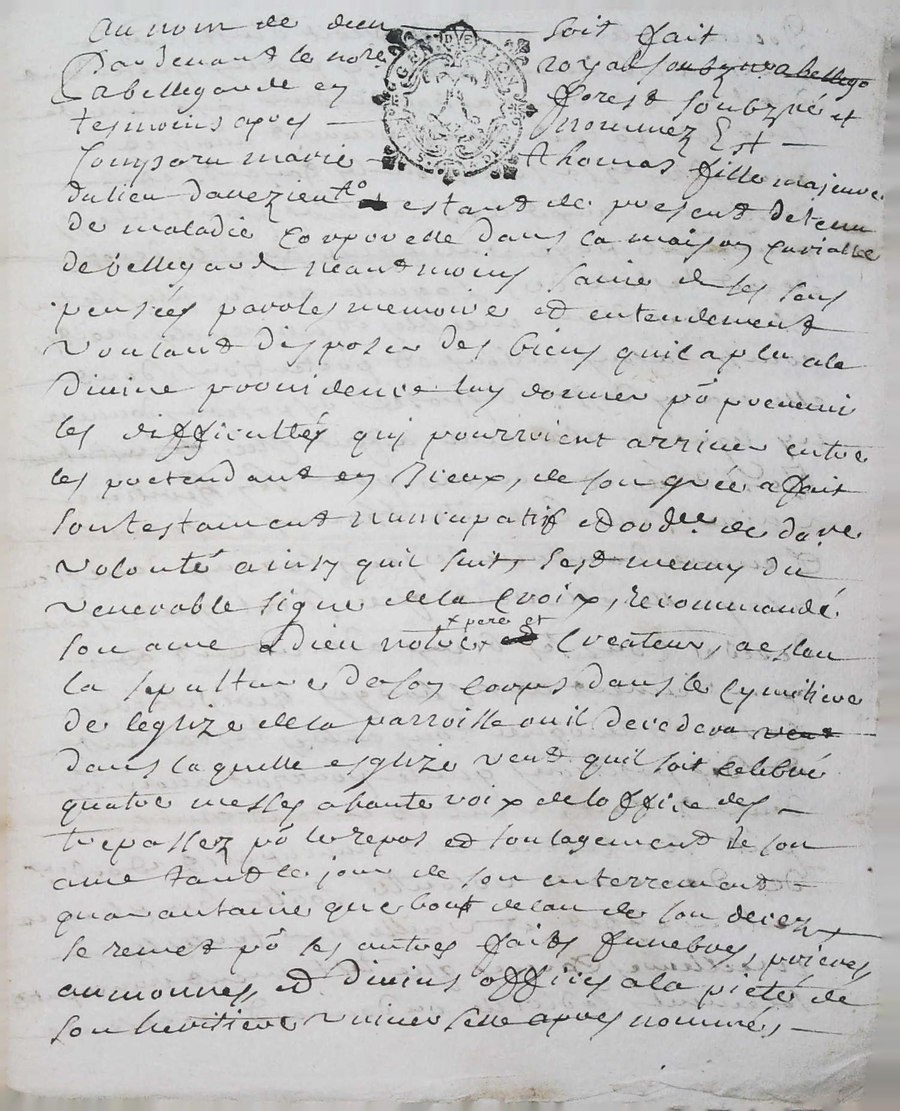 au nom de dieu — soit fait
Pardevant le nore royal soubzne a bellega
a bellegarde en forest soubzne et
tesmoins apres — nommez Est —
Comparu marie — thomas fille majeure
du lieu davezient estant de present detenu
de maladie corporelle dans la maison curialle
de bellegarde neantmoins saine de ses sens
pensées paroles memoire et entendement
voulant disposer des biens quil a plu a la
divine providence luy donner po prevenir
les difficultés quy pourroient arriver entre
les pretendant en Iceux, de son gré a fait
son testament nuncupatif et ordre de dare
volonté ainsy quil suit, sest muny du
venerable signe de la Croix, recommandé
son ame a dieu notre x pere et Createur, aeslu
la sepulture de son corps dans le cymitiere
de leglize de la parroisse ou il decedera veut
dans laquelle esglize veut quil soit celebré
quatre messes a haute voix de loffice des —
trepassez po le repos et soulagement de son
ame tant le jour de son enterrement
quarantaine que bout de lan de son decez
se remet po les autres faits funebres, prieres,
aumonnes, et divins offices a la pieté de
son heritiere universelle apres nommés —